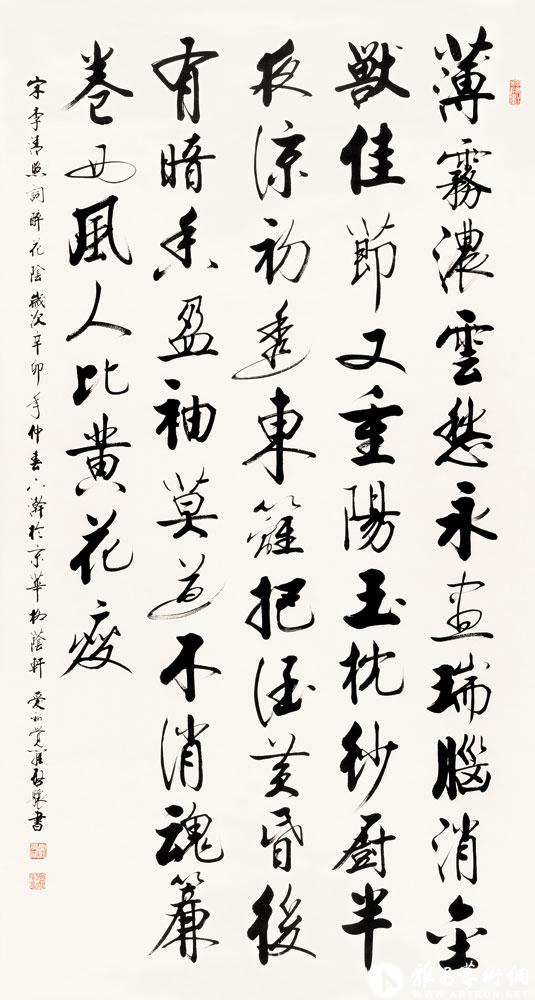 薄霧濃雲愁永晝瑞腦消金
獸佳節又重陽玉枕紗廚半
夜涼初透東籬把酒黃昏後
有暗香盈袖莫道不消魂簾
卷西風人比黃花瘦
宋李清照詞醉花陰歲次辛卯年仲春下澣於京華柳蔭軒 愛新覺羅啟驤書
雅昌藝術網
ARTRON.NET